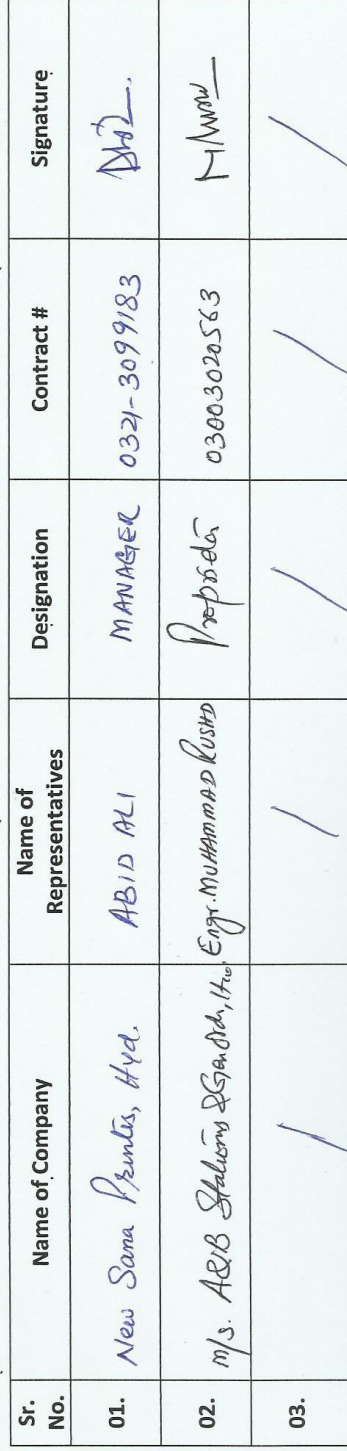 Sr. No. Name of Company Name of Representatives Designation Contract # Signature
01. New Sana Printers, Hyd. ABID ALI MANAGER 0321-3099183
02. M/s. A&B Engr. MUHAMMAD RUSHD 03003020563
03. / / / / /